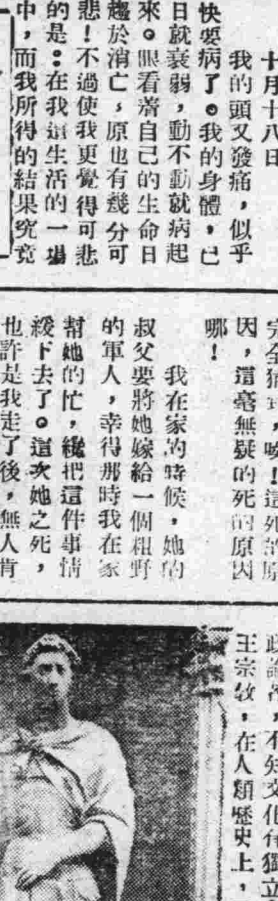 十月十八日
我的頭又發痛，似乎
快要病了。我的身體，已
日就衰弱，動不動就病起
來。眼看着自己的生命日
趨於消亡，原也有幾分可
悲！不過使我更覺得可悲
的是：在我這生活的一場
中，而我所得的結果究竟
完全猜到，唉！這死的原
因，這毫無疑的死的原因
哪！
我在家的時候，她的
叔父要將她嫁給一個粗野
的軍人，幸得那時我在家
幫她的忙，纔把這件事情
緩下去了。這次她之死，
也許是我走了後，無人肯
不知文化有獨立
王宗教，在人類歷史上，